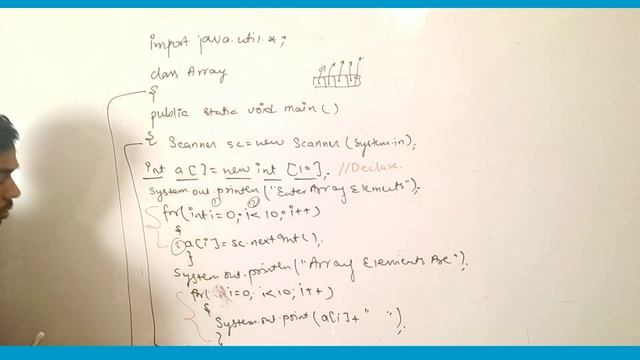 import java.util.*;
class Array
{
public static void main()
{ Scanner sc=new Scanner(System.in);
int a[]=new int [10]; //Declare
System.out.println("Enter Array Elements");
for(int i=0; i<10; i++)
{
a[i]=sc.nextInt();
}
System.out.println("Array Elements Are");
for( i=0; i<10; i++)
{
System.out.print(a[i]+" ");
}